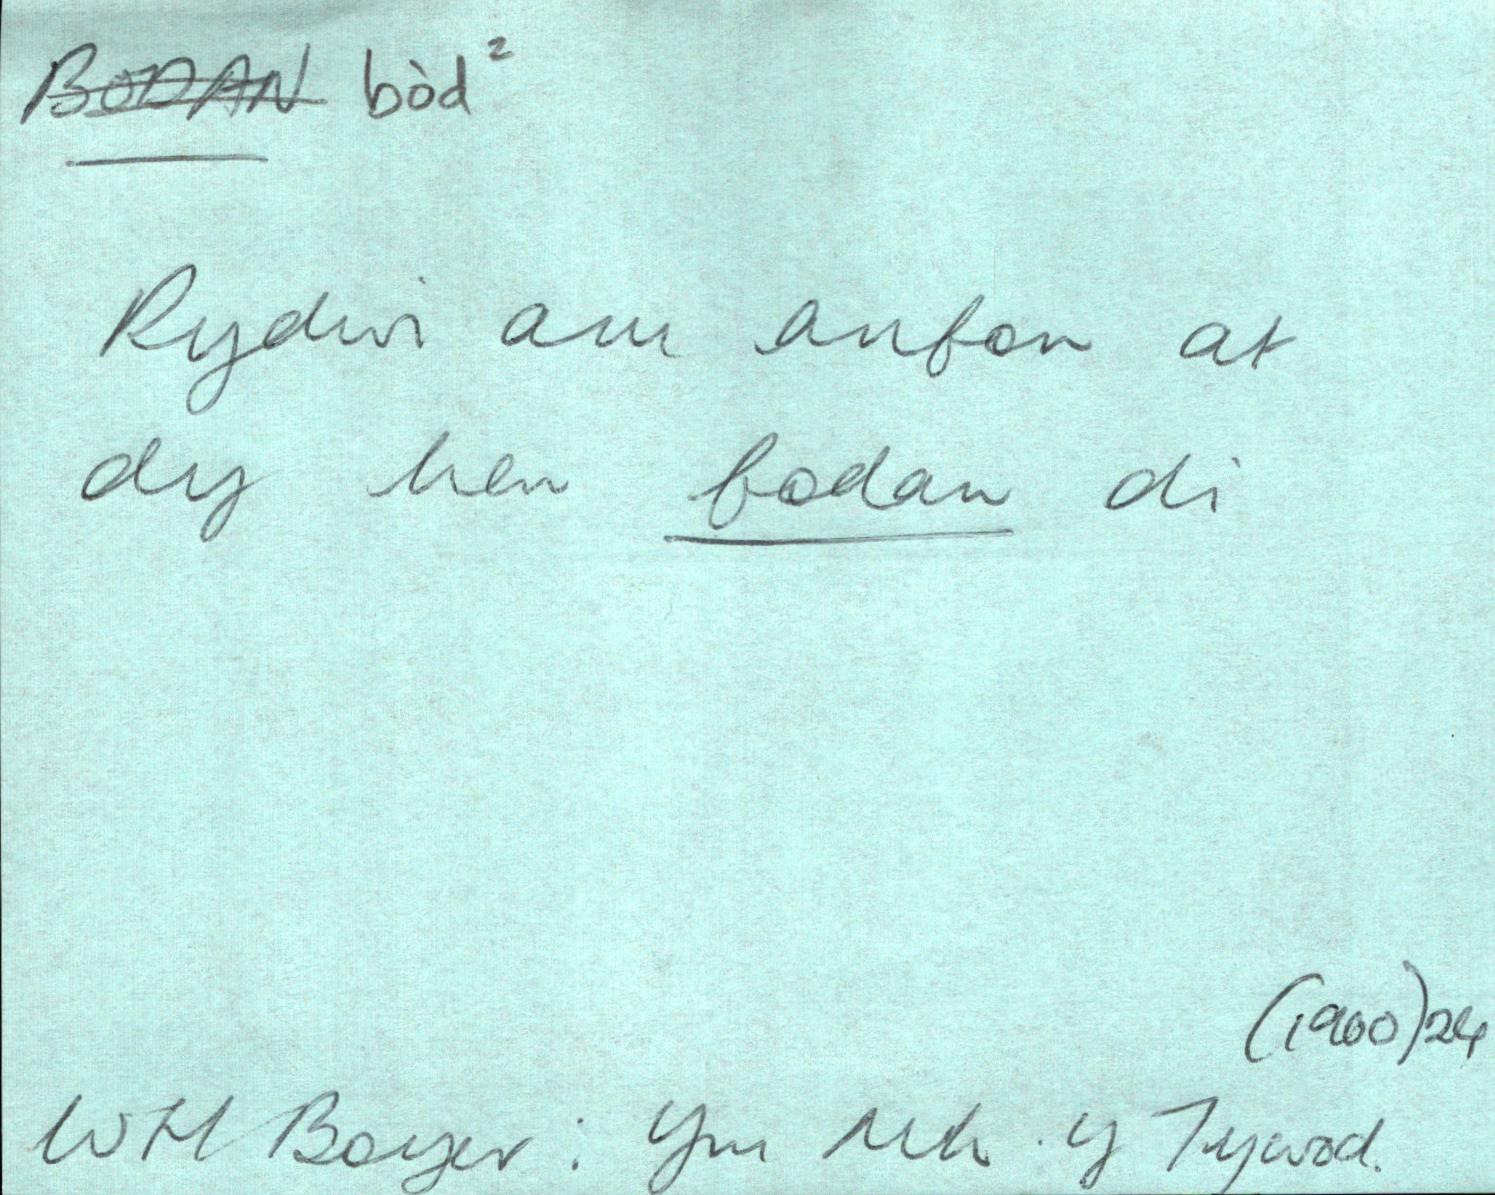 BODAN bòd²
Rydwi am anfon at
dy hen fodan di
(1960)24
WH Boyer: Ym Mh. y Tywod.